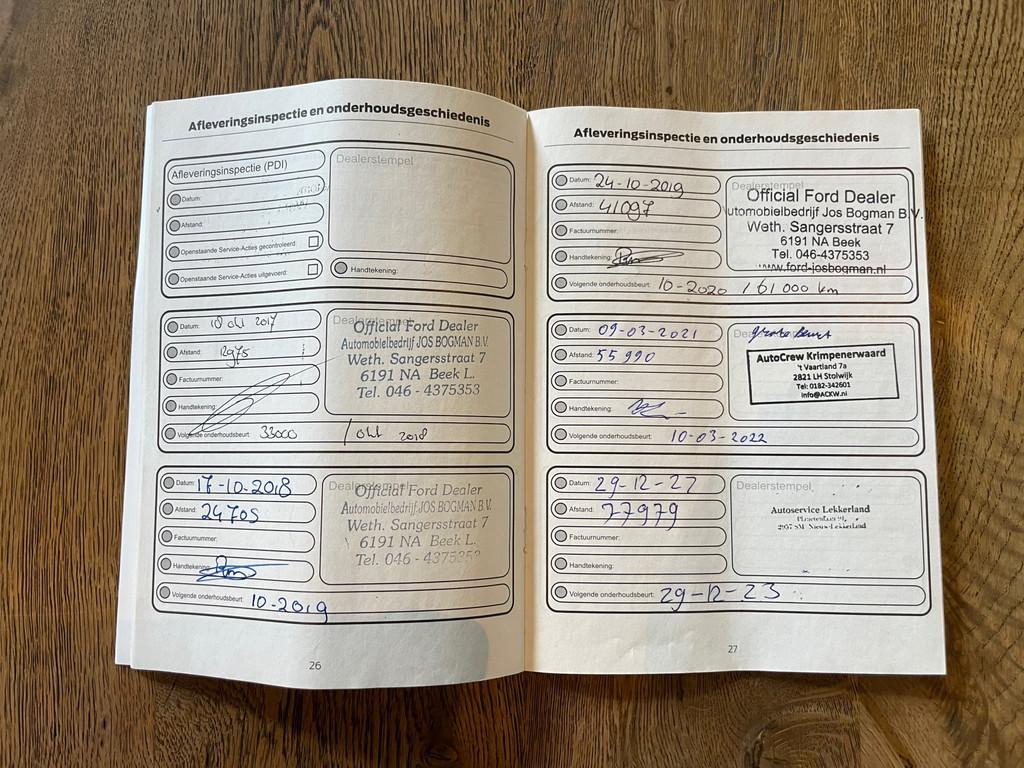 Afleveringsinspectie en onderhoudsgeschiedenis
Afleveringsinspectie (PDI)
Dealerstempel
Datum:
Afstand:
Openstaande Service-Acties gecontroleerd:
Openstaande Service-Acties uitgevoerd:
Handtekening:
Datum: 10 okt 2017
Afstand: 12975
Factuurnummer:
Handtekening:
Volgende onderhoudsbeurt: 33000 / okt 2018
Dealerstempel
Official Ford Dealer
Automobielbedrijf JOS BOGMAN B.V.
Weth. Sangersstraat 7
6191 NA Beek L.
Tel. 046 - 4375353
Datum: 17-10-2018
Afstand: 24705
Factuurnummer:
Handtekening:
Volgende onderhoudsbeurt: 10-2019
Dealerstempel
Official Ford Dealer
Automobielbedrijf JOS BOGMAN B.V.
Weth. Sangersstraat 7
6191 NA Beek L.
Tel. 046 - 4375353
26
Afleveringsinspectie en onderhoudsgeschiedenis
Datum: 24-10-2019
Afstand: 41097
Factuurnummer:
Handtekening:
Volgende onderhoudsbeurt: 10-2020 / 61 000 km
Dealerstempel
Official Ford Dealer
utomobielbedrijf Jos Bogman B.V.
Weth. Sangersstraat 7
6191 NA Beek
Tel. 046-4375353
www.ford-josbogman.nl
Datum: 09-03-2021
Afstand: 55990
Factuurnummer:
Handtekening:
Volgende onderhoudsbeurt: 10-03-2022
Dealerstempel
grote beurt
AutoCrew Krimpenerwaard
't Vaartland 7a
2821 LH Stolwijk
Tel: 0182-342601
info@ACKW.nl
Datum: 29-12-22
Afstand: 77979
Factuurnummer:
Handtekening:
Volgende onderhoudsbeurt: 29-12-23
Dealerstempel
Autoservice Lekkerland
2957 SM Nieuw-Lekkerland
27